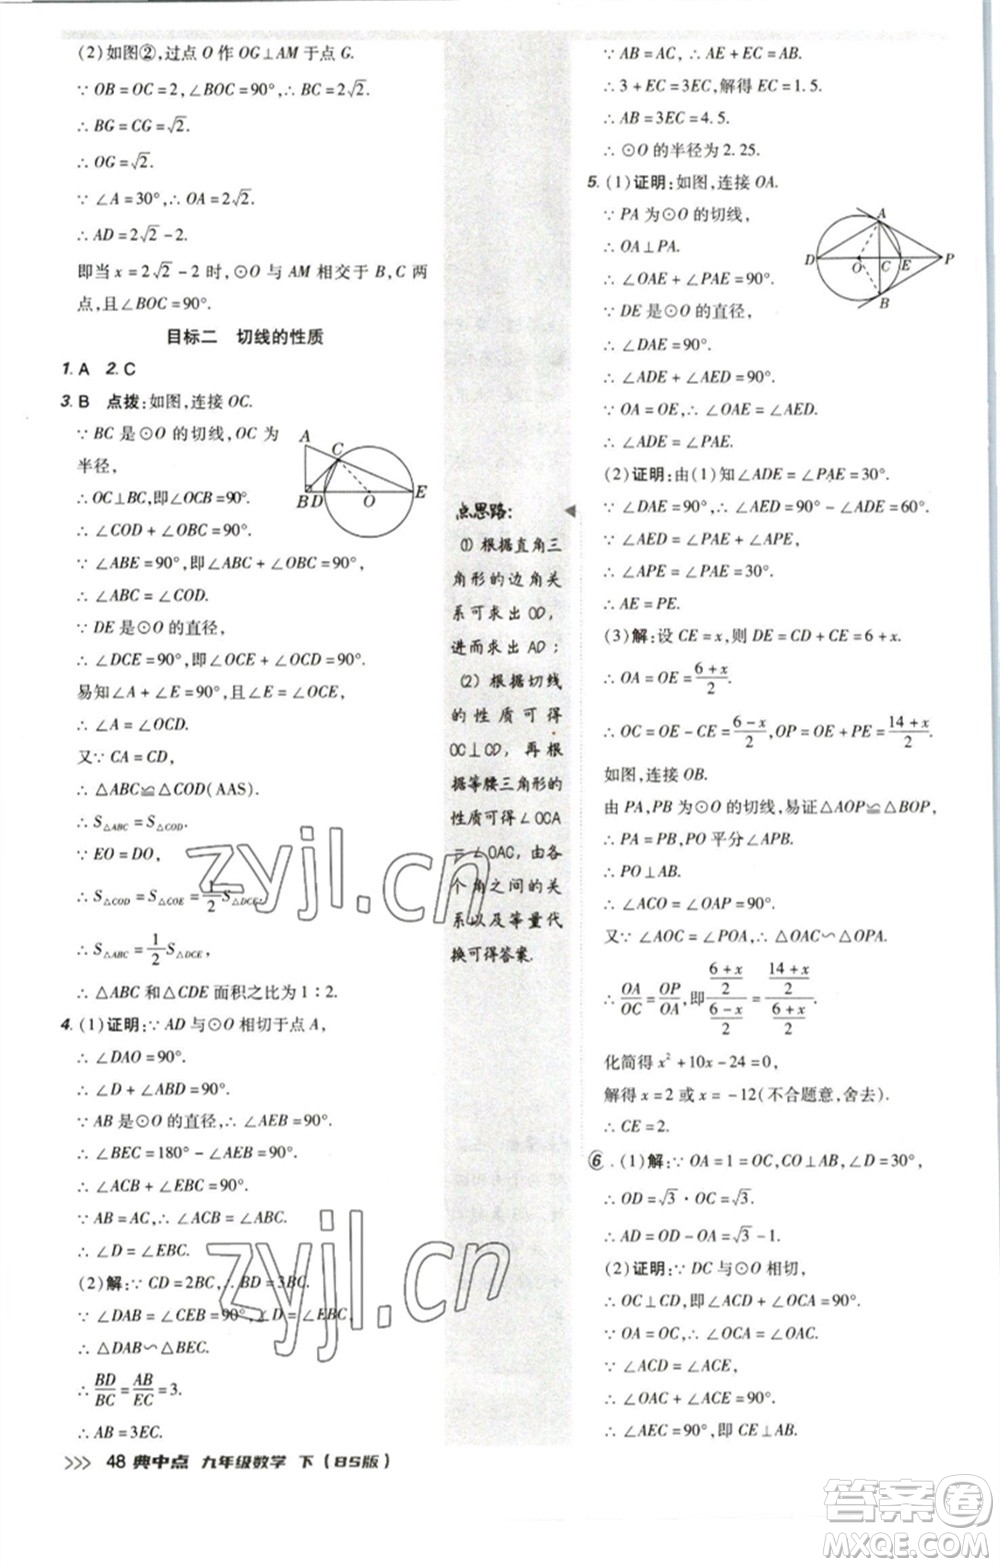 (2)如图②,过点 O 作 OG⊥AM 于点 G.
∵ OB=OC=2,∠BOC=90°,∴ BC=2√2.
∴ BG=CG=√2.
∴ OG=√2.
∵ ∠A=30°,∴ OA=2√2.
∴ AD=2√2-2.
即当 x=2√2-2 时,⊙O 与 AM 相交于 B,C 两
点,且∠BOC=90°.
目标二 切线的性质
1. A 2. C
3. B 点拨:如图,连接 OC.
∵ BC 是⊙O 的切线,OC 为
半径,
∴ OC⊥BC,即∠OCB=90°.
∴ ∠COD+∠OBC=90°.
∵ ∠ABE=90°,∴ ∠ABC+∠OBC=90°.
∴ ∠ABC=∠COD.
∵ DE 是⊙O 的直径,
∴ ∠DCE=90°,即∠OCE+∠OCD=90°.
易知∠A+∠E=90°,且∠E=∠OCE,
∴ ∠A=∠OCD.
又∵ CA=CD,
∴ △ABC≌△COD(AAS).
∴ S△ABC=S△COD.
∵ EO=DO,
∴ S△COD=S△COE=1/2 S△DCE.
∴ S△ABC=1/2 S△DCE,
∴ △ABC 和△CDE 面积之比为 1∶2.
4. (1)证明:∵ AD 与⊙O 相切于点 A,
∴ ∠DAO=90°.
∴ ∠D+∠ABD=90°.
∵ AB 是⊙O 的直径,∴ ∠AEB=90°.
∴ ∠BEC=180°-∠AEB=90°.
∴ ∠ACB+∠EBC=90°.
∵ AB=AC,∴ ∠ABC=∠ACB.
∴ ∠D=∠EBC.
(2)解:∵ CD=2BC,∴ BD=3BC.
∵ ∠DAB=∠CEB=90°,∠D=∠EBC,
∴ △DAB∽△BEC.
∴ BD/BC=AB/EC=3.
∴ AB=3EC.
A
C
B
D
O
E
点思路:
① 根据直角三
角形的边角关
系可求出 OD,
进而求出 AD;
(2) 根据切线
的性质可得
OC⊥CD,再根
据等腰三角形的
性质可得∠OCA
=∠OAC,由各
个角之间的关
系以及等量代
换可得答案.
∵ AB=AC,∴ AE+EC=AB.
∴ 3+EC=3EC,解得 EC=1.5.
∴ AB=3EC=4.5.
∴ ⊙O 的半径为 2.25.
5. (1)证明:如图,连接 OA.
∵ PA 为⊙O 的切线,
∴ OA⊥PA.
∴ ∠OAE+∠PAE=90°.
∵ DE 是⊙O 的直径,
∴ ∠DAE=90°.
∴ ∠ADE+∠AED=90°.
∵ OA=OE,∴ ∠OAE=∠AED.
∴ ∠ADE=∠PAE.
(2)证明:由(1)知∠ADE=∠PAE=30°.
∵ ∠DAE=90°,∴ ∠AED=90°-∠ADE=60°.
∵ ∠AED=∠PAE+∠APE,
∴ ∠APE=∠PAE=30°.
∴ AE=PE.
(3)解:设 CE=x,则 DE=CD+CE=6+x.
∴ OA=OE=(6+x)/2.
∴ OC=OE-CE=(6-x)/2,OP=OE+PE=(14+x)/2.
如图,连接 OB.
由 PA,PB 为⊙O 的切线,易证△AOP≌△BOP,
∴ PA=PB,PO 平分∠APB.
∴ PO⊥AB.
∴ ∠ACO=∠OAP=90°.
又∵ ∠AOC=∠POA,∴ △AOC∽△OPA.
∴ OA/OC=OP/OA,即 ((6+x)/2)/((6-x)/2)=((14+x)/2)/((6+x)/2).
化简得 x²+10x-24=0,
解得 x=2 或 x=-12(不合题意,舍去).
∴ CE=2.
⑥. (1)解:∵ OA=1=OC,CO⊥AB,∠D=30°,
∴ OD=√3·OC=√3.
∴ AD=OD-OA=√3-1.
(2)证明:∵ DC 与⊙O 相切,
∴ OC⊥CD,即∠ACD+∠OCA=90°.
∵ OA=OC,∴ ∠OCA=∠OAC.
∵ ∠ACD=∠ACE,
∴ ∠OAC+∠ACE=90°.
∴ ∠AEC=90°,即 CE⊥AB.
A
D
O
C
E
P
B
>>> 48 典中点 九年级数学 下(BS版)
zyjl.cn
zyjl.cn
答案圈
MXQE.COM